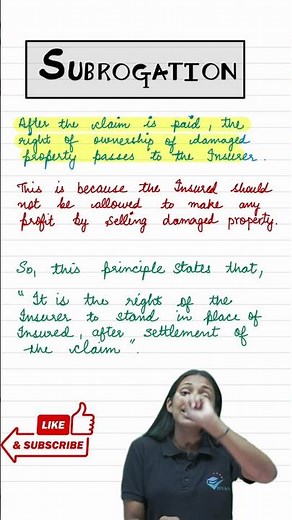 SUBROGATION
After the claim is paid, the
right of ownership of damaged
property passes to the Insurer.
This is because the Insured should
not be allowed to make any
profit by selling damaged property.
So, this principle states that,
"It is the right of the
Insurer to stand in place of
Insured, after settlement of
the claim".
LIKE
& SUBSCRIBE